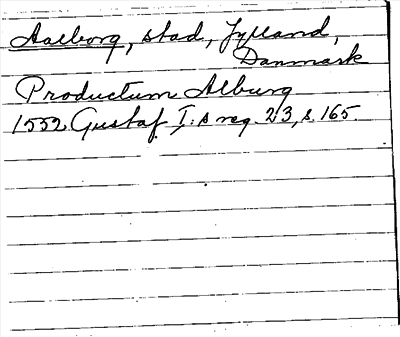 Aalborg, stad, Jylland,
Danmark
Productum Alburg
1552. Gustaf I:s reg. 23, s. 165.